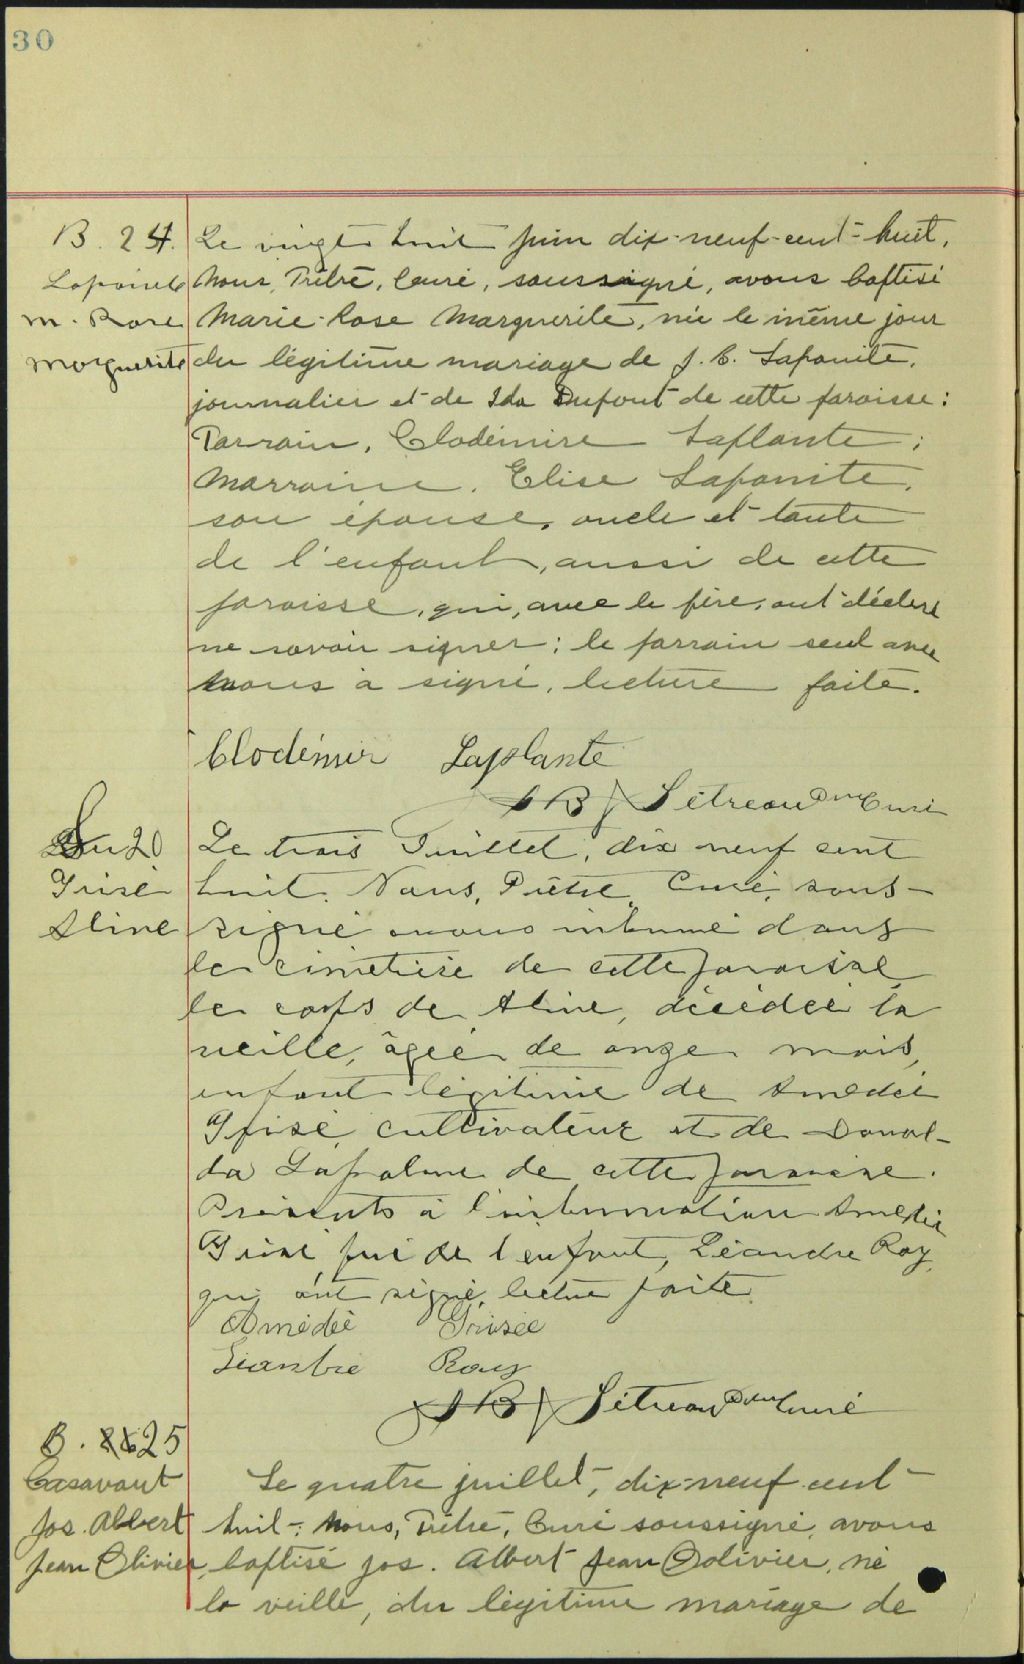 30
B. 24.
Lapointe
M. Rose
Marguerite
Le vingt huit juin dix-neuf-cent-huit,
Nous, Prêtre, Curé, soussigné, avons baptisé
Marie-Rose Marguerite, née le même jour
du légitime mariage de J. B. Lapointe,
journalier et de Ida Dupont de cette paroisse:
Parrain, Clodémire Laplante;
Marraine, Elise Lapointe,
son épouse, oncle et tante
de l'enfant, aussi de cette
paroisse, qui, avec le père, ont déclaré
ne savoir signer; le parrain seul avec
Nous a signé, lecture faite.
Clodémir Laplante
J B Létreau Curé
S 20
Grisé
Aline
Le trois Juillet, dix neuf cent
huit, Nous, Prêtre, Curé, sous-
signé avons inhumé dans
le cimetière de cette paroisse
le corps de Aline, décédée la
veille, âgée de onze mois,
enfant légitime de Amédée
Grisé cultivateur et de Donal-
da Lapalme de cette paroisse.
Présents à l'inhumation Amédée
Grisé père de l'enfant, Léandre Roy,
qui ont signé, lecture faite
Amédée Grisée
Léandre Roy
J B Létreau Curé
B. 25
Casavant
Jos. Albert
Jean Olivier
Le quatre juillet, dix-neuf cent
huit, Nous, Prêtre, Curé soussigné, avons
baptisé Jos. Albert Jean Olivier, né
la veille, du légitime mariage de